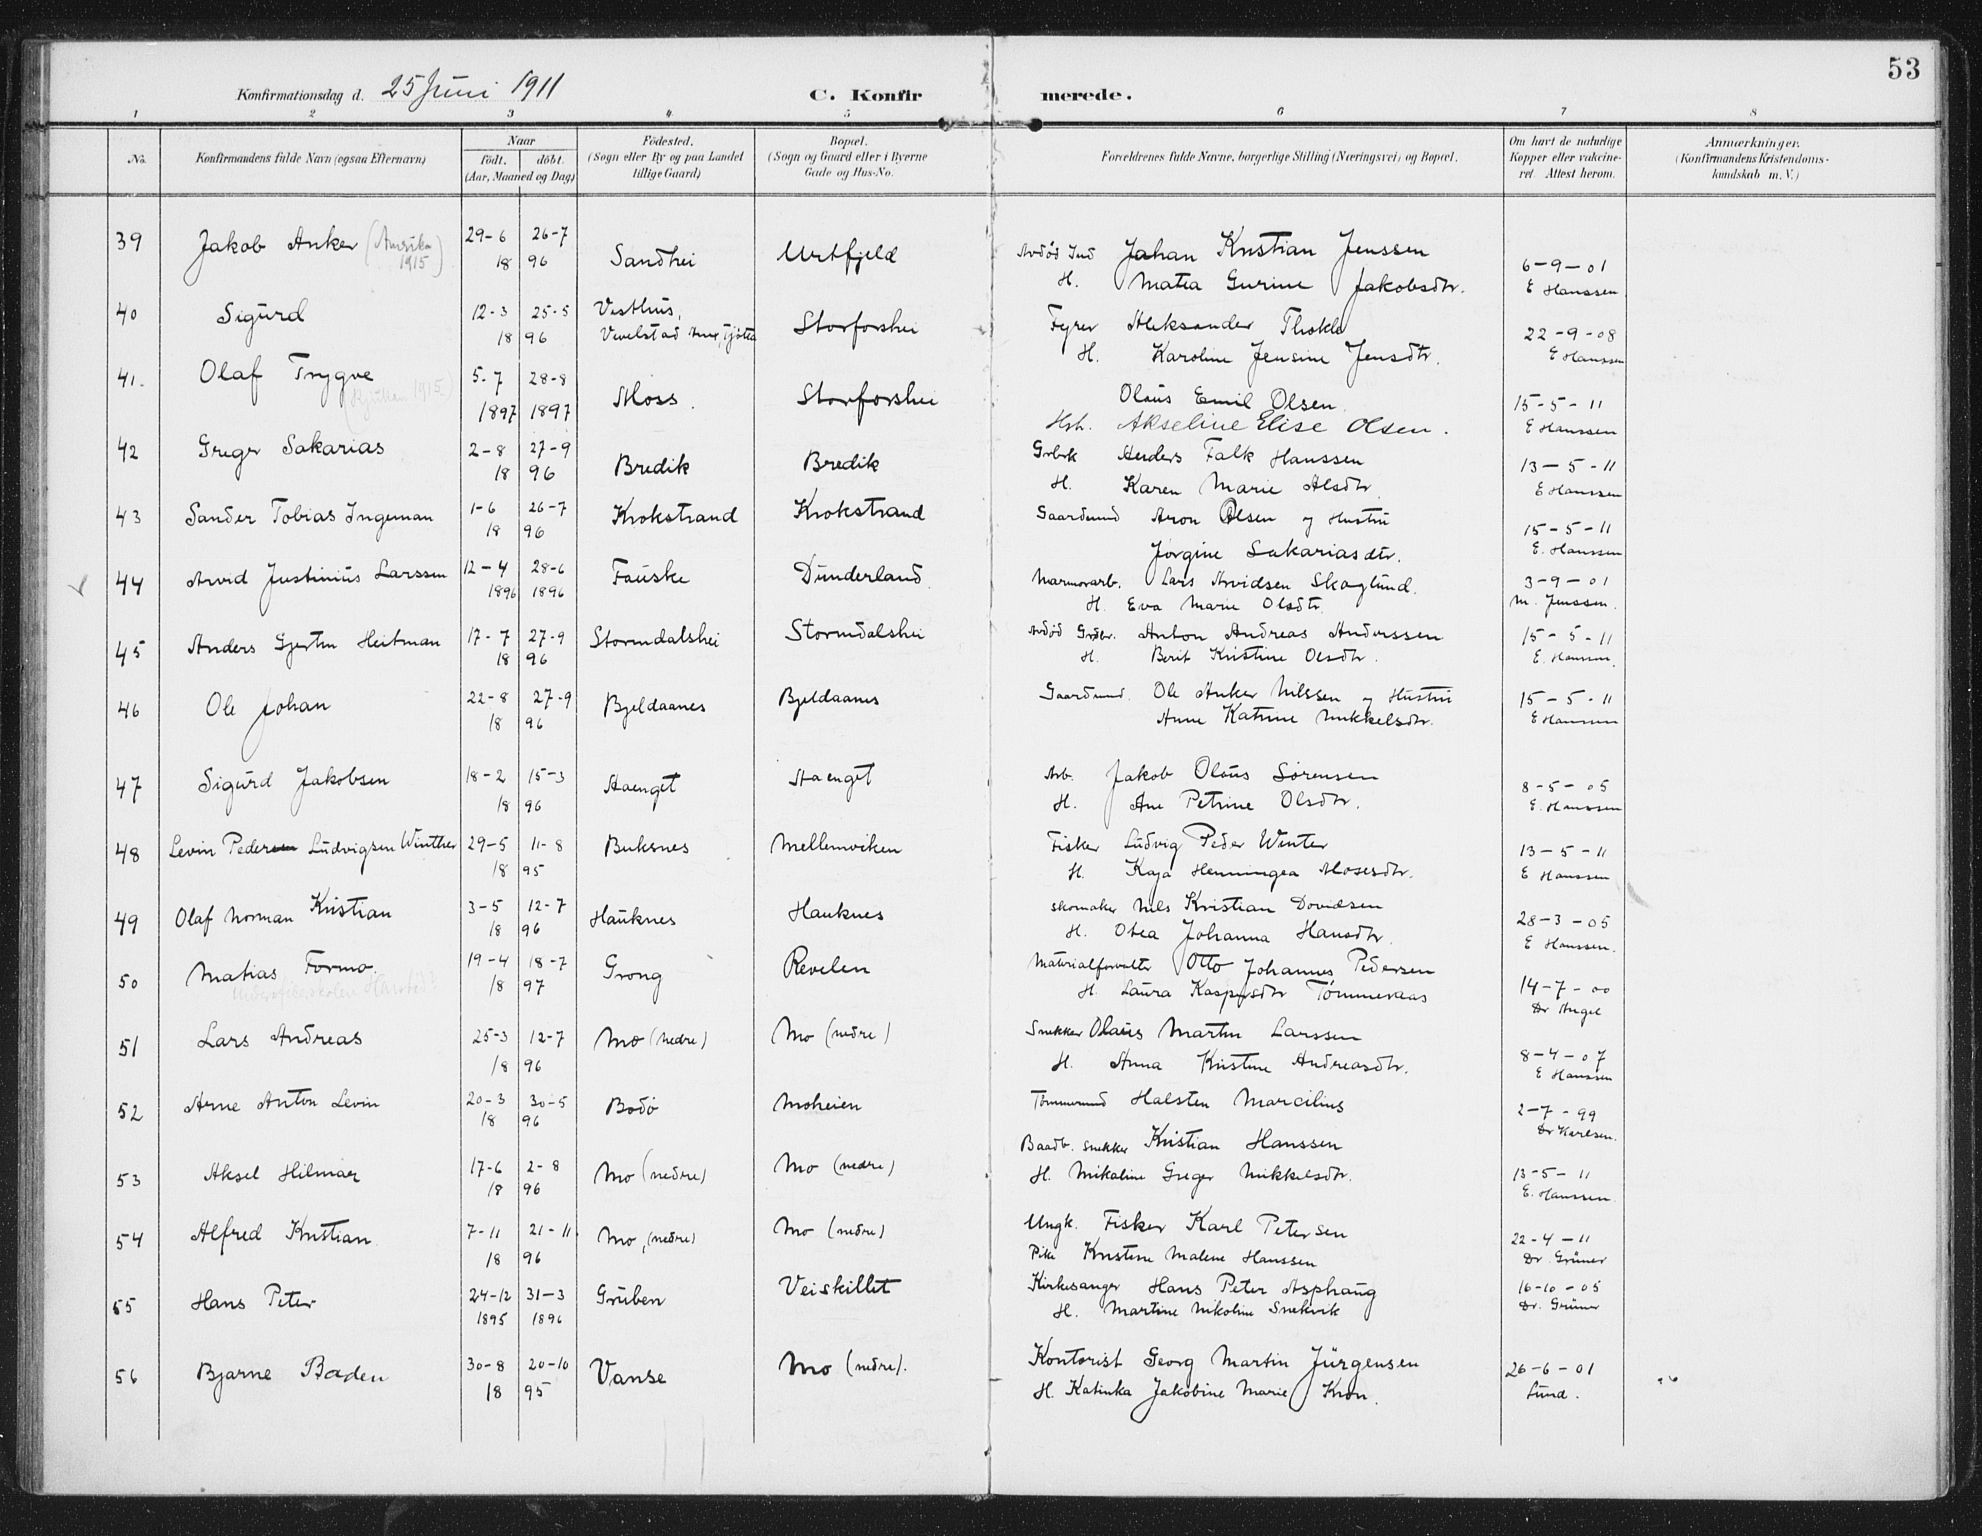 53
Konfirmationsdag d. 25 Juni 1911 C. Konfirmerede.
1 2 3 4 5 6 7 8
No. Konfirmandens fulde Navn (ogsaa Efternavn) Naar født. døbt. (Aar, Maaned og Dag) Fødested. (Sogn eller By og paa Landet tillige Gaard) Bopæl. (Sogn og Gaard eller i Byerne Gade og Hus-No. Forældrenes fulde Navne, borgerlige Stilling (Næringsvei) og Bopæl. Om havt de naturlige Kopper eller vakcineret. Attest herom. Anmærkninger. (Konfirmandens Kristendomskundskab m. V.)
39 Jakob Anker (Amerika 1915) 29-6 26-7 Sandhei Urtfjeld Avdød Ind Johan Kristian Jenssen 6-9-01
18 96 H. Matea Gurine Jakobsdtr. E Hanssen
40 Sigurd 12-3 25-5 Vesthus, Storforshei Fyrer Aleksander Thokle 22-9-08
18 96 Vevelstad Anx, Tjøtta H. Karoline Jensine Jensdtr. E Hanssen
41. Olaf Trygve 5-7 28-8 Moss. Storforshei Olaus Emil Olsen 15-5-11
1915) 1897 1897 Hst. Akseline Elise Olsen. E Hanssen
42 Greger Sakarias 2-8 27-9 Bredik Bredik Grbrk Anders Falk Hanssen 13-5-11
18 96 H. Karen Marie Alsdtr. E Hanssen
43 Sander Tobias Ingeman 1-6 26-7 Krokstrand Krokstrand Gaardmand Aron Olsen og Hustru 15-5-11
18 96 Jørgine Sakariasdtr. E. Hanssen
44 Arvid Justinius Larssen 12-4 28-6 Fauske Dunderland Marmorarb. Lars Arvidsen Skoglund. 3-9-01
1896 1896 H. Eva Marie Olsdtr. M. Jenssen.
45 Anders Gjertin Heitman 17-7 27-9 Stormdalshei Stormdalshei Avdød Grdbr. Anton Andreas Anderssen 15-5-11
18 96 H. Berit Kristine Olsdtr. E. Hanssen.
46 Ole Johan 22-8 27-9 Bjeldaanes Bjeldaanes Gaardmand. Ole Anker Nilssen og Hustru 15-5-11
18 96 Anne Katrine Mikkelsdtr. E Hanssen
47 Sigurd Jakobsen 18-2 15-3 Haenget Haenget Arb. Jakob Olaus Sørensen 8-5-05
18 96 H. Ane Petrine Olsdtr. E. Hanssen
48 Levin Pedersen Ludvigsen Winther 29-5 11-8 Buksnes Mellemviken Fisker Ludvig Peder Winter 13-5-11
18 95 H. Kaja Henningea Mosesdtr. E Hanssen
49 Olaf Norman Kristian 3-5 12-7 Hauknes Hauknes Skomaker Nils Kristian Davidsen 28-3-05
18 96 H. Otea Johanna Hansdtr. E Hanssen.
50 Matias Formo. 19-4 18-7 Grong Revelen Materialforvalter Otto Johannes Pedersen 14-7-00
18 97 H. Laura Kaspersdtr Tømmeraas Dr Angel
51 Lars Andreas 25-3 12-7 Mo (nedre) Mo (nedre) Snekker Olaus Martin Larssen 8-4-07
18 96 H. Anna Kristine Andreasdtr. E Hanssen
52 Arne Anton Levin 20-3 30-5 Bodø Moheien Tømmermand Halsten Marcilius 2-7-99
18 96 Dr Karlsen.
53 Aksel Hilmar 17-6 2-8 Mo (nedre) Mo (nedre) Baadb. Snekker Kristian Hanssen 13-5-11
18 96 H. Mikaline Greger Mikkelsdtr. E. Hanssen
54 Alfred Kristian 7-11 21-11 Mo, (nedre) Mo (nedre) Ungk. Fisker Karl Petersen 22-4-11
18 96 Pike Kristine Malene Hanssen Dr. Grüner
55 Hans Peter 24-12 31-3 Gruben Veiskillet Kirkesanger Hans Peter Asphaug 16-10-05
1895 1896 H. Martine Nikoline Snekvik Dr. Grüner
56 Bjarne Baden 30-8 20-10 Vanse Mo (nedre). Kontorist Georg Martin Jürgensen 26-6-01
18 95 H. Katinka Jakobine Marie Kron. Lund.